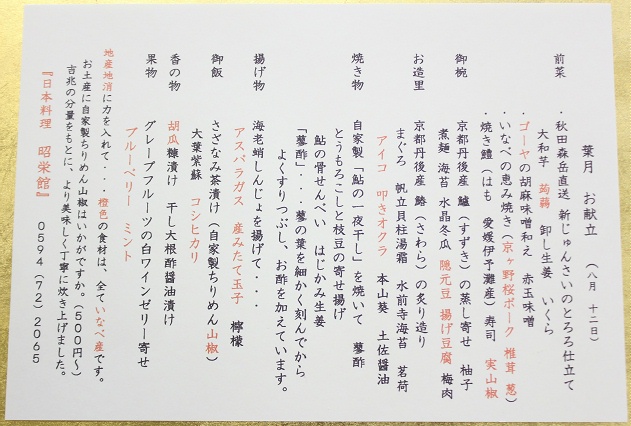 葉月 お献立 (八月 十二日)
前菜 ・秋田森岳直送 新じゅんさいのとろろ仕立て
大和芋 蒟蒻 卸し生姜 いくら
・ゴーヤの胡麻味噌和え 赤玉味噌
・いなべの恵み焼き(京ヶ野桜ポーク 椎茸 葱)
・焼き鱧(はも 愛媛伊予灘産)寿司 実山椒
御椀 京都丹後産 鱸(すずき)の蒸し寄せ 柚子
煮麺 海苔 水晶冬瓜 隠元豆 揚げ豆腐 梅肉
お造里 京都丹後産 鰆(さわら)の炙り造り
まぐろ 帆立貝柱湯霜 水前寺海苔 茗荷
アイコ 叩きオクラ 本山葵 土佐醤油
焼き物 自家製「鮎の一夜干し」を焼いて 蓼酢
とうもろこしと枝豆の寄せ揚げ
鮎の骨せんべい はじかみ生姜
「蓼酢」・・蓼の葉を細かく刻んでから
よくすりつぶし、お酢を加えています。
揚げ物 海老蛸しんじょを揚げて・・・
アスパラガス 産みたて玉子 檸檬
御飯 さざなみ茶漬け(自家製ちりめん山椒)
大葉紫蘇 コシヒカリ
香の物 胡瓜糠漬け 干し大根酢醤油漬け
果物 グレープフルーツの白ワインゼリー寄せ
ブルーベリー ミント
地産地消に力を入れて・・・橙色の食材は、全ていなべ産です。
お土産に自家製ちりめん山椒はいかがですか。(500円～)
吉兆の分量をもとに、より美味しく丁寧に炊き上げました。
『日本料理 昭栄館』 0594(72)2065